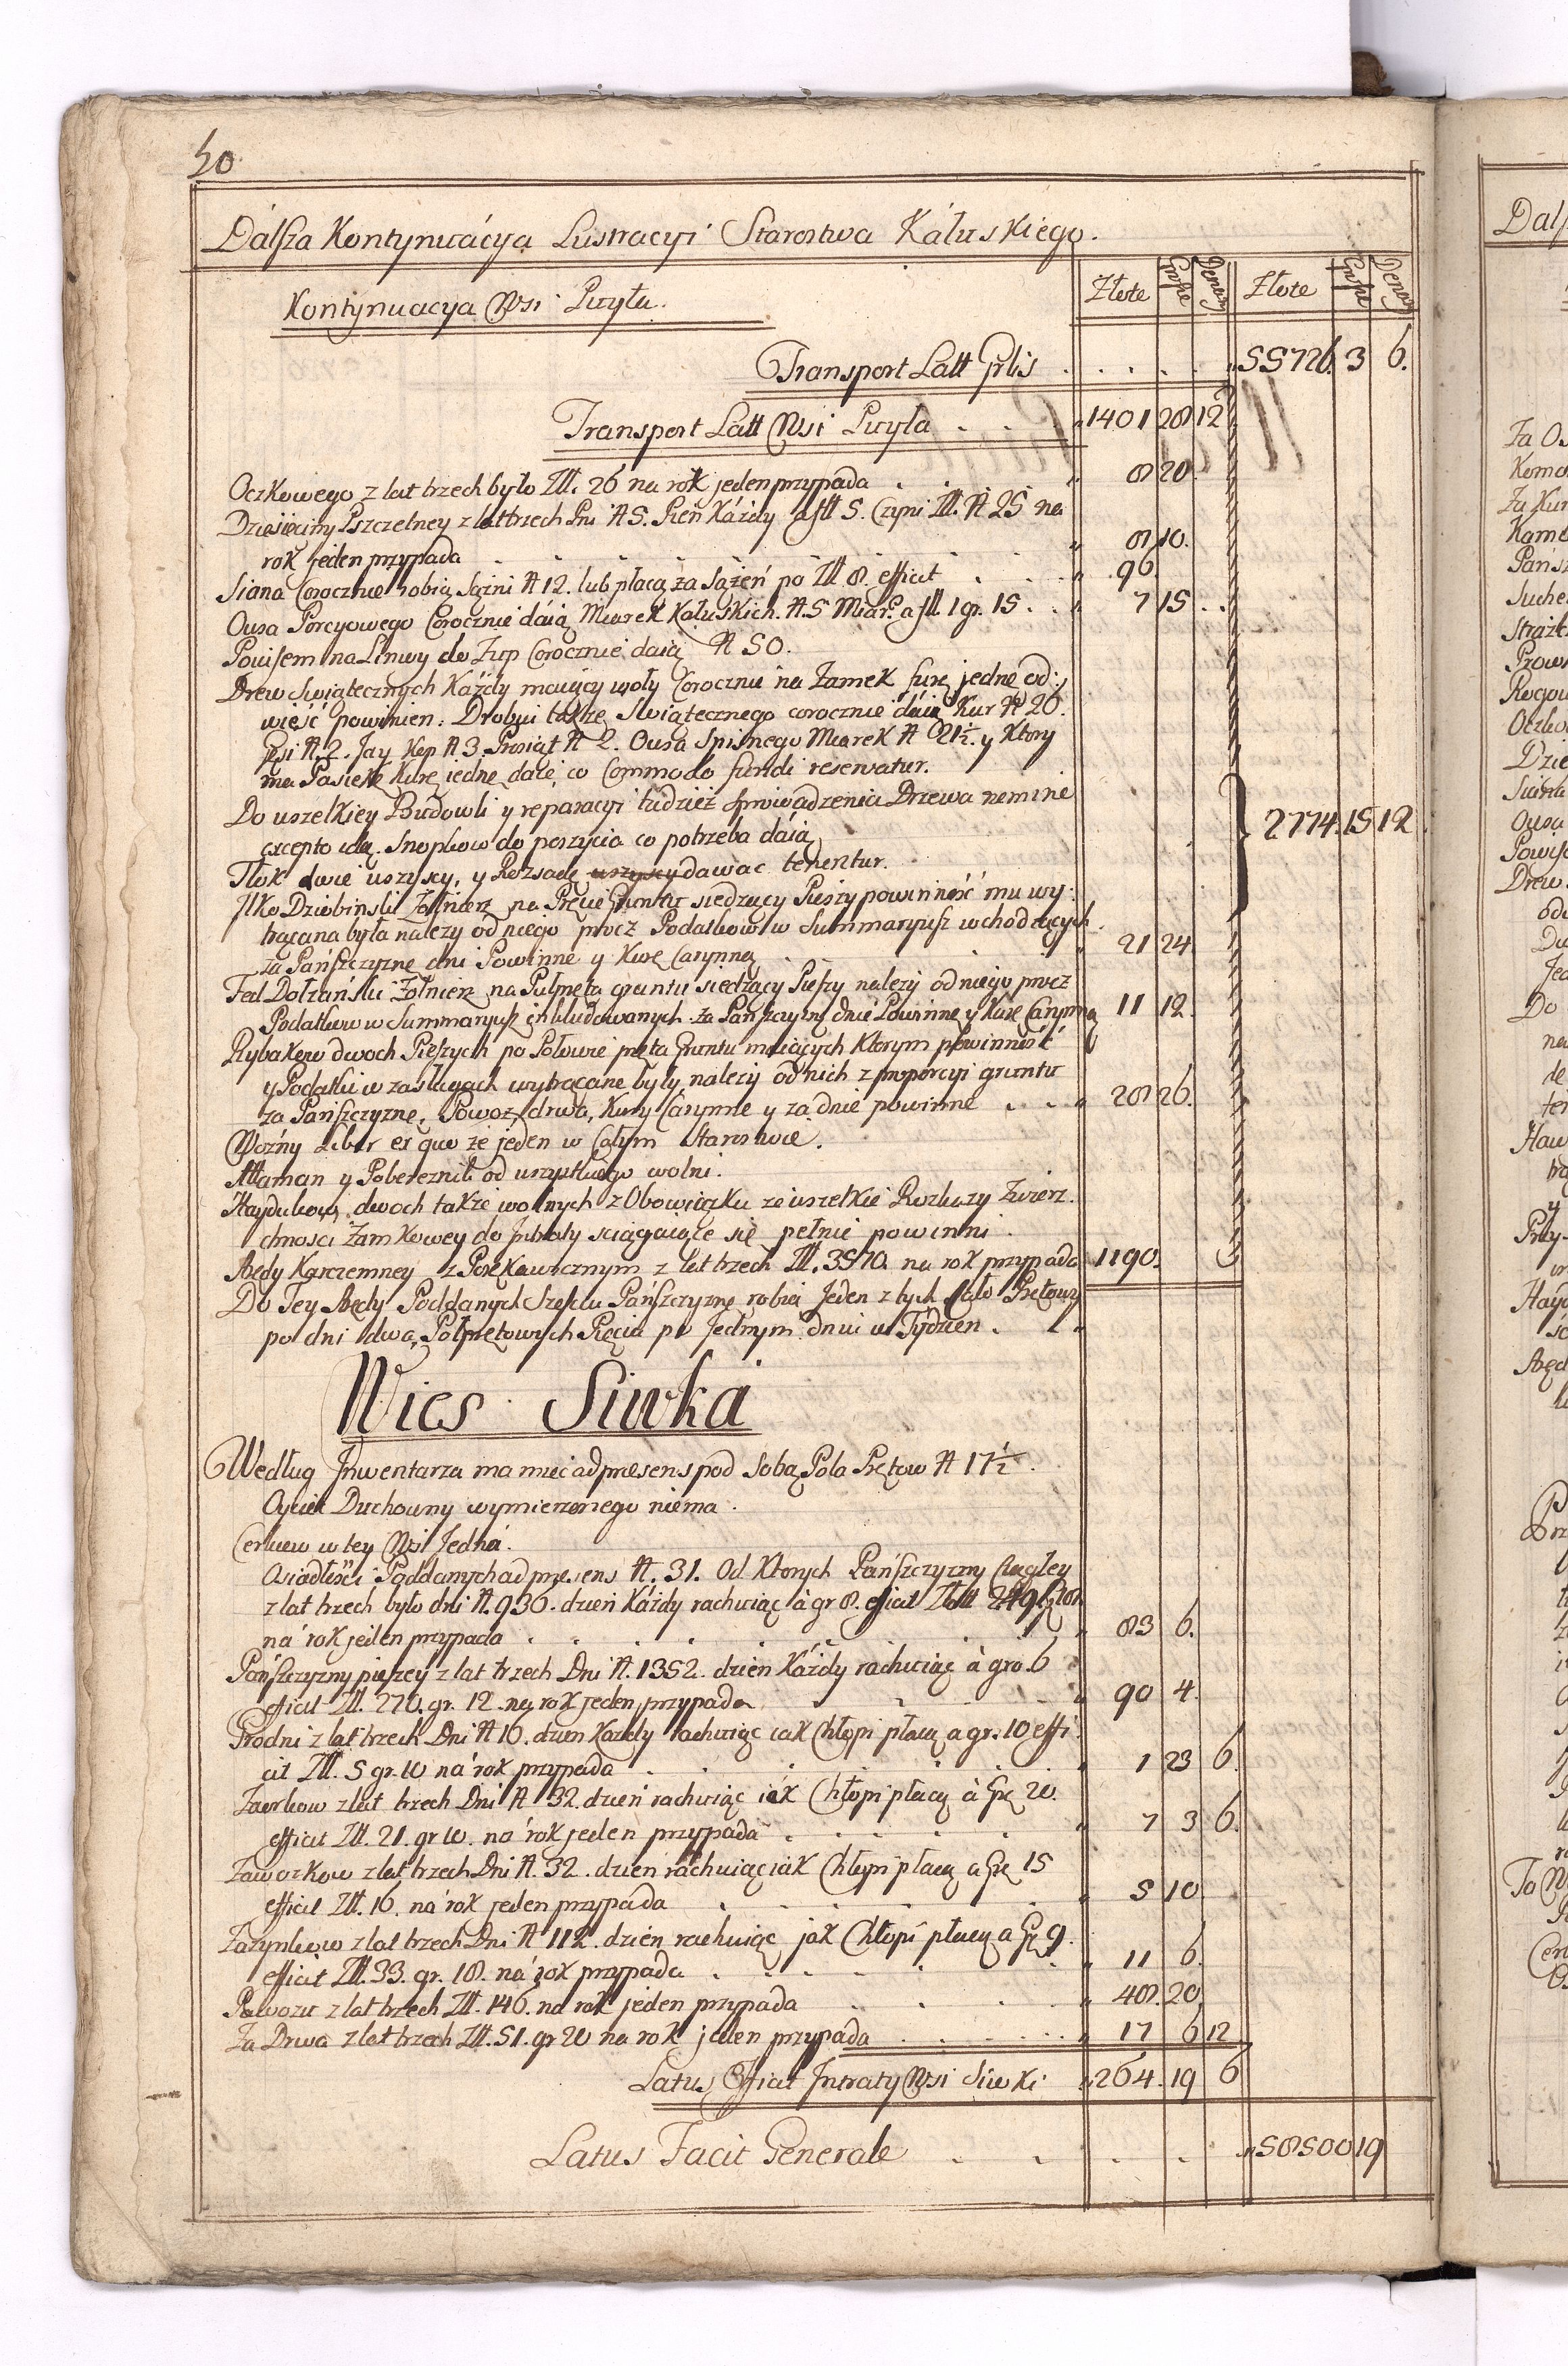 50
Dálsza Kontynuácya Lustracyi Starostwa Káłuskiego.
Złote Grosze Denary Złote Grosze Denary
Kontynuacya Wsi Puyła.
Transport Latt Grlis . . . . 55726. 3 6.
Transport Latt Wsi Puyła . . . 1401 28 12
Oczkowego z lat trzech było Złł. 26 na rok jeden przypada . . . 8 20.
Dziesięciny Pszczelney z lat trzech Pni N 5. Pień Káżdy a fll 5. Czyni Złł. N 25 na
rok jeden przypada . . . 8 10.
Siana Corocznie robią Sążni N 12. lub płacą za Sążeń po Złł 8. efficit . . . 96.
Owsa Porcyowego Corocznie dáią Miarek Kałuskich. N. 5 Miar. a fll. 1 gr. 15 . . . 7 15 . .
Powisem na Linwy do Zup Corocznie daią N 50.
Drew Swiątecznych Káżdy maiący woły Corocznie na Zamek furę jednę od:
wieść powinien. Drobiu także Swiątecznego corocznie dáią Kur N 26.
Gęsi N. 2. Jay Kop N 3. Prosiąt N 2. Owsa Spisnego Miarek N 21½. y Ktory
ma Pasiekę Kurę iednę daie, co Commodo fundi reservatur.
Do wszelkiey Budowli y reparacyi tudzież sprowadzenia Drzewa nemine
excepto idą. Snopkow do poszycia co potrzeba dáią
Tłok dwie wszyscy, y Rozsadę wszyscy dawac tenentur.
2774. 15 12
Ilko Dziubinski Zołnierz na Pręcie Gruntu siedzący Pieszy powinność mu wy:
trącana była należy od niego procz Podatkow w Summaryusz wchodzących
za Pańszczyznę dni Powinne y Kurę Carynną . . . 21 24.
Fed Dolzański Zołnierz na Pułpręta gruntu siedzący Pieszy należy od niego procz
Podatkow w Summaryusz inkludowanych. za Pańszczyznę dnie Powinne y Kurę Carynną 11 12.
Rybakow dwoch Pieszych po Połowie pręta Gruntu maiących Ktorym powinność
y Podatki w zasługach wytrącane były, należy od nich z proporcyi gruntu
za Pańszczyznę, Powoz, drwa, Kury Carynne y za dnie powinne . . . 28 26.
Woźny Liber ex quo że jeden w Całym Starostwie.
Attaman y Pobereznik od wszystkiego wolni.
Haydukow dwoch także wolnych z Obowiązku ze wszelkie Rozkazy Zwierz.
chnosci Zamkowey do Intraty sciągaiące się pełnić powinni.
Arędy Karczemney z Porękawicznym z lat trzech Złł. 3570. na rok przypada 1190.
Do Tey Arędy Poddanych Sześciu Pańszczyznę robią Jeden z tych Prętowy
po dni dwa, Półprętowych Pięciu po Jednym dniu w Tydzien .
Wies Siwka
Według Inwentarza ma mieć ad præsens pod Sobą Pola Prętow N 17½.
Oyciec Duchowny wymierzonego niema.
Cerkiew w tey Wsi Jedná.
Osiadłości Poddanych ad præsens N. 31. Od Ktorych Pańszczyzny Ciągley
z lat trzech było dni N. 936. dzień Káżdy rachuiąc à gr 8. efficit Złł 249 gr 18
ná rok jeden przypada . . . 83 6.
Pańszczyzny pieszey z lat trzech Dni N. 1352. dzien Káżdy rachuiąc à gro. 6
efficit Złł. 270. gr. 12. na rok jeden przypada . . . 90 4.
Grodni z lat trzech Dni N 16. dzien Każdy rachuiąc iak Chłopi płacą a gr. 10 effi:
cit Złł. 5 gr. 10 ná rok przypada . . . 1 23 6.
Zaorkow z lat trzech Dni N 32. dzień rachuiąc iák Chłopi płacą à Gr 20.
efficit Złł. 21. gr 10. na rok jeden przypada . . . 7 3 6.
Zawozkow z lat trzech Dni N. 32. dzien ráchuiąc iak Chłopi płacą a Gr 15
efficit Złł. 16. na rok jeden przypáda . . . 5 10.
Zazynkow z lat trzech Dni N 112. dzien rachuiąc jak Chłopi płacą a Gr 9.
efficit Złł. 33. gr. 18. na rok przypada . . . 11 6.
Powozu z lat trzech Złł. 146. na rok jeden przypada . . . 48. 20
Za Drwa z lat trzech Złł. 51. gr 20 na rok jeden przypada . . . 17 6 12
Latus Efficit Intraty Wsi Siwki 264. 19 6
Latus Facit Generale . . . . 58500 19